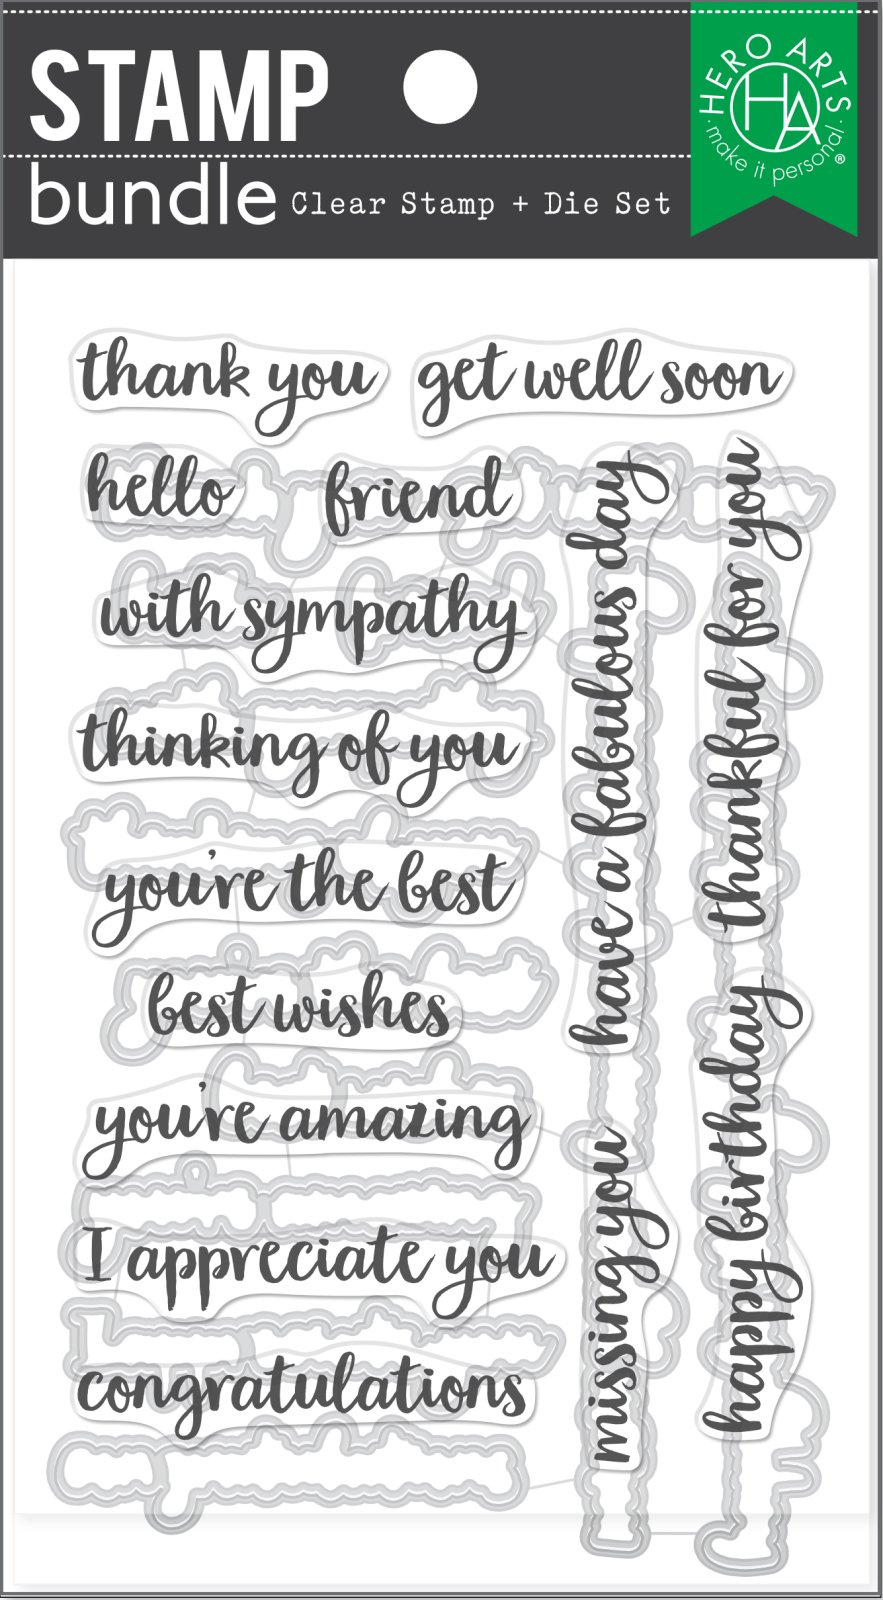 STAMP
bundle Clear Stamp + Die Set
HERO ARTS
HA
· make it personal · ®
thank you
get well soon
hello
friend
with sympathy
thinking of you
you're the best
best wishes
you're amazing
I appreciate you
congratulations
have a fabulous day
missing you
thankful for you
happy birthday